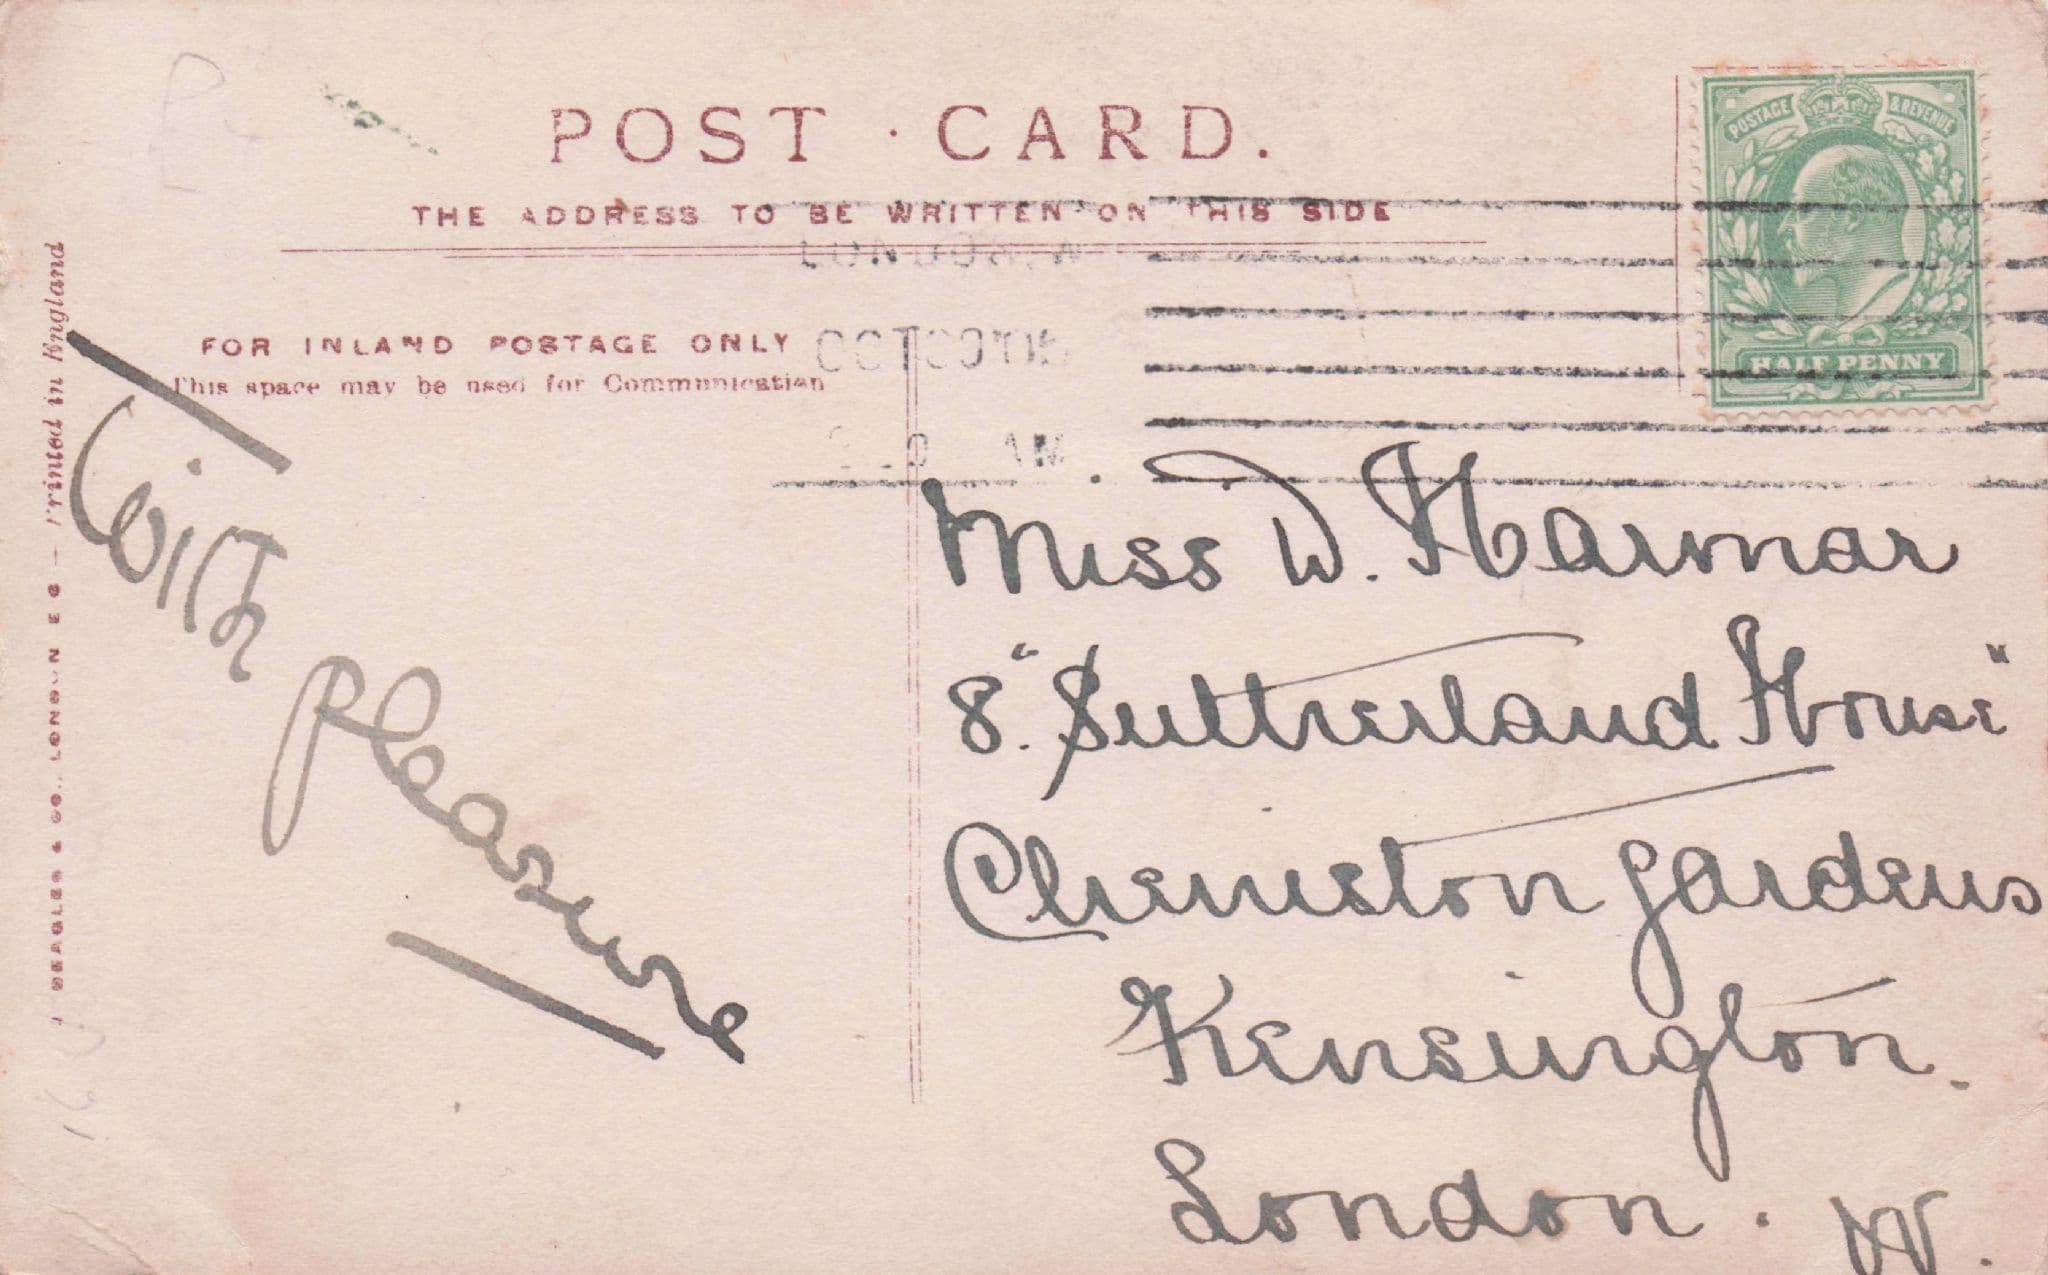 POST · CARD.
THE ADDRESS TO BE WRITTEN ON THIS SIDE
POSTAGE & REVENUE
HALF PENNY
FOR INLAND POSTAGE ONLY
This space may be used for Communication
BEAGLES & CO., LONDON E C — Printed in England
With
pleasure
Miss W. Harmar
8. "Sutherland House"
Cheniston Gardens
Kensington.
London. W.